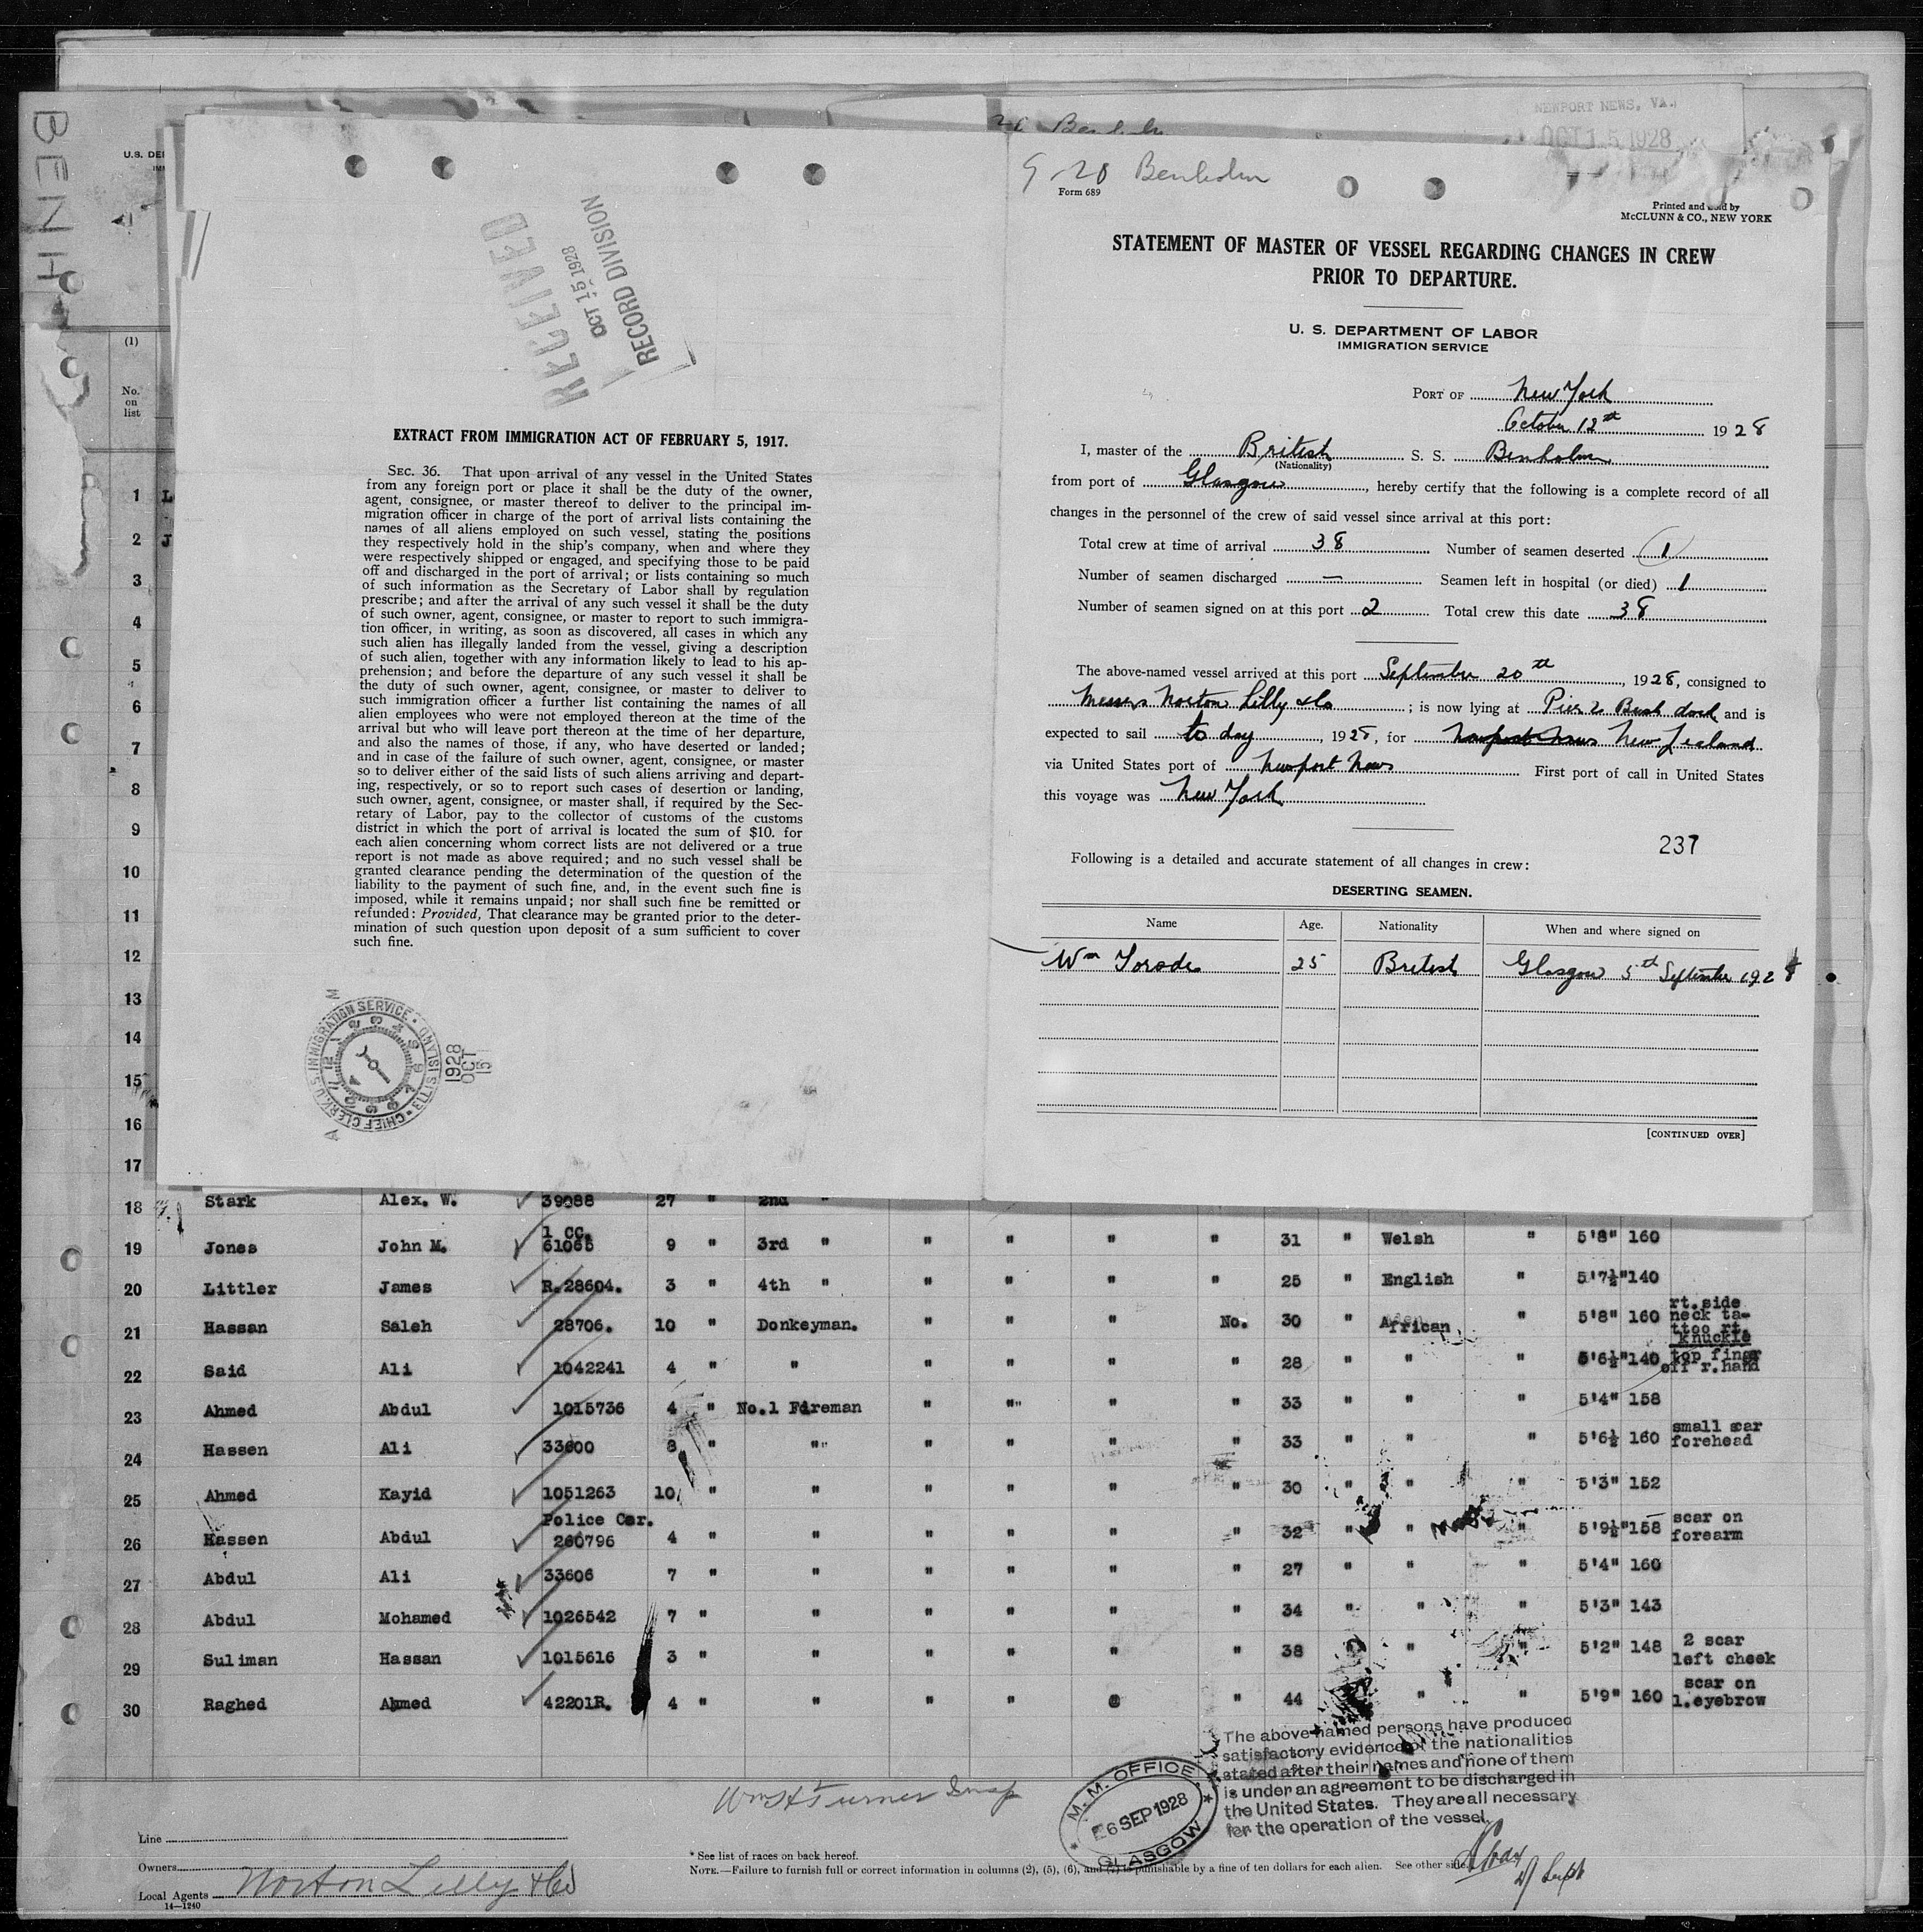 BENH
NEWPORT NEWS, VA.
OCT 15 1928
U.S. DE
(1)
No.
on
list
1 L
2 J
3
4
5
6
7
8
9
10
11
12
13
14
15
16
17
RECEIVED
OCT 15 1928
RECORD DIVISION
EXTRACT FROM IMMIGRATION ACT OF FEBRUARY 5, 1917.
SEC. 36. That upon arrival of any vessel in the United States
from any foreign port or place it shall be the duty of the owner,
agent, consignee, or master thereof to deliver to the principal im-
migration officer in charge of the port of arrival lists containing the
names of all aliens employed on such vessel, stating the positions
they respectively hold in the ship's company, when and where they
were respectively shipped or engaged, and specifying those to be paid
off and discharged in the port of arrival; or lists containing so much
of such information as the Secretary of Labor shall by regulation
prescribe; and after the arrival of any such vessel it shall be the duty
of such owner, agent, consignee, or master to report to such immigra-
tion officer, in writing, as soon as discovered, all cases in which any
such alien has illegally landed from the vessel, giving a description
of such alien, together with any information likely to lead to his ap-
prehension; and before the departure of any such vessel it shall be
the duty of such owner, agent, consignee, or master to deliver to
such immigration officer a further list containing the names of all
alien employees who were not employed thereon at the time of the
arrival but who will leave port thereon at the time of her departure,
and also the names of those, if any, who have deserted or landed;
and in case of the failure of such owner, agent, consignee, or master
so to deliver either of the said lists of such aliens arriving and depart-
ing, respectively, or so to report such cases of desertion or landing,
such owner, agent, consignee, or master shall, if required by the Sec-
retary of Labor, pay to the collector of customs of the customs
district in which the port of arrival is located the sum of $10. for
each alien concerning whom correct lists are not delivered or a true
report is not made as above required; and no such vessel shall be
granted clearance pending the determination of the question of the
liability to the payment of such fine, and, in the event such fine is
imposed, while it remains unpaid; nor shall such fine be remitted or
refunded: Provided, That clearance may be granted prior to the deter-
mination of such question upon deposit of a sum sufficient to cover
such fine.
CHIEF CLERK U.S. IMMIGRATION SERVICE ELLIS ISLAND
1928
OCT
15
9-20 Benholm
Form 689
Printed and Sold by
McCLUNN & CO., NEW YORK
STATEMENT OF MASTER OF VESSEL REGARDING CHANGES IN CREW
PRIOR TO DEPARTURE.
U. S. DEPARTMENT OF LABOR
IMMIGRATION SERVICE
PORT OF New York
October 12th 1928
I, master of the British S. S. Benholm
(Nationality)
from port of Glasgow, hereby certify that the following is a complete record of all
changes in the personnel of the crew of said vessel since arrival at this port:
Total crew at time of arrival 38 Number of seamen deserted 1
Number of seamen discharged — Seamen left in hospital (or died) 1
Number of seamen signed on at this port 2 Total crew this date 38
The above-named vessel arrived at this port September 20th, 1928, consigned to
Messrs Norton Lilly & Co; is now lying at Pier 2 Bush dock and is
expected to sail to day, 1928, for Newport News New Zealand
via United States port of Newport News First port of call in United States
this voyage was New York
237
Following is a detailed and accurate statement of all changes in crew:
DESERTING SEAMEN.
Name Age. Nationality When and where signed on
Wm Torode 25 British Glasgow 5th September 1928
[CONTINUED OVER]
18 Stark Alex. W. 39088 27 " 2nd "
19 Jones John M. 1 CC. 61065 9 " 3rd " " " " " 31 " Welsh " 5'8" 160
20 Littler James R.28604. 3 " 4th " " " " " 25 " English " 5'7½" 140
21 Hassan Saleh 28706. 10 " Donkeyman. " " " No. 30 " African " 5'8" 160 rt.side neck ta- ttoo rt. knuckle
22 Said Ali 1042241 4 " " " " " " 28 " " " 5'6½" 140 top finger off r.hand
23 Ahmed Abdul 1015736 4 " No.1 Fireman " "" " " 33 " " " 5'4" 158
24 Hassen Ali 33600 8 " "" " " " " 33 " " " 5'6½ 160 small scar forehead
25 Ahmed Kayid 1051263 10 " " " " " " 30 " " " 5'3" 152
26 Hassen Abdul Police Cer. 260796 4 " " " " " " 32 " " " 5'9½" 158 scar on forearm
27 Abdul Ali 33606 7 " " " " " " 27 " " " 5'4" 160
28 Abdul Mohamed 1026542 7 " " " " " " 34 " " " 5'3" 143
29 Suliman Hassan 1015616 3 " " " " " " 38 " " 5'2" 148 2 scar left cheek
30 Raghed Ahmed 42201R. 4 " " " " " " 44 " " 5'9" 160 scar on l.eyebrow
The above-named persons have produced
satisfactory evidence of the nationalities
stated after their names and none of them
is under an agreement to be discharged in
the United States. They are all necessary
for the operation of the vessel.
M. M. OFFICE
26 SEP 1928
GLASGOW
Wm H Turner Insp
Line
Owners
Local Agents Norton Lilly & Co
14—1240
* See list of races on back hereof.
NOTE.—Failure to furnish full or correct information in columns (2), (5), (6), and (7) is punishable by a fine of ten dollars for each alien. See other side.